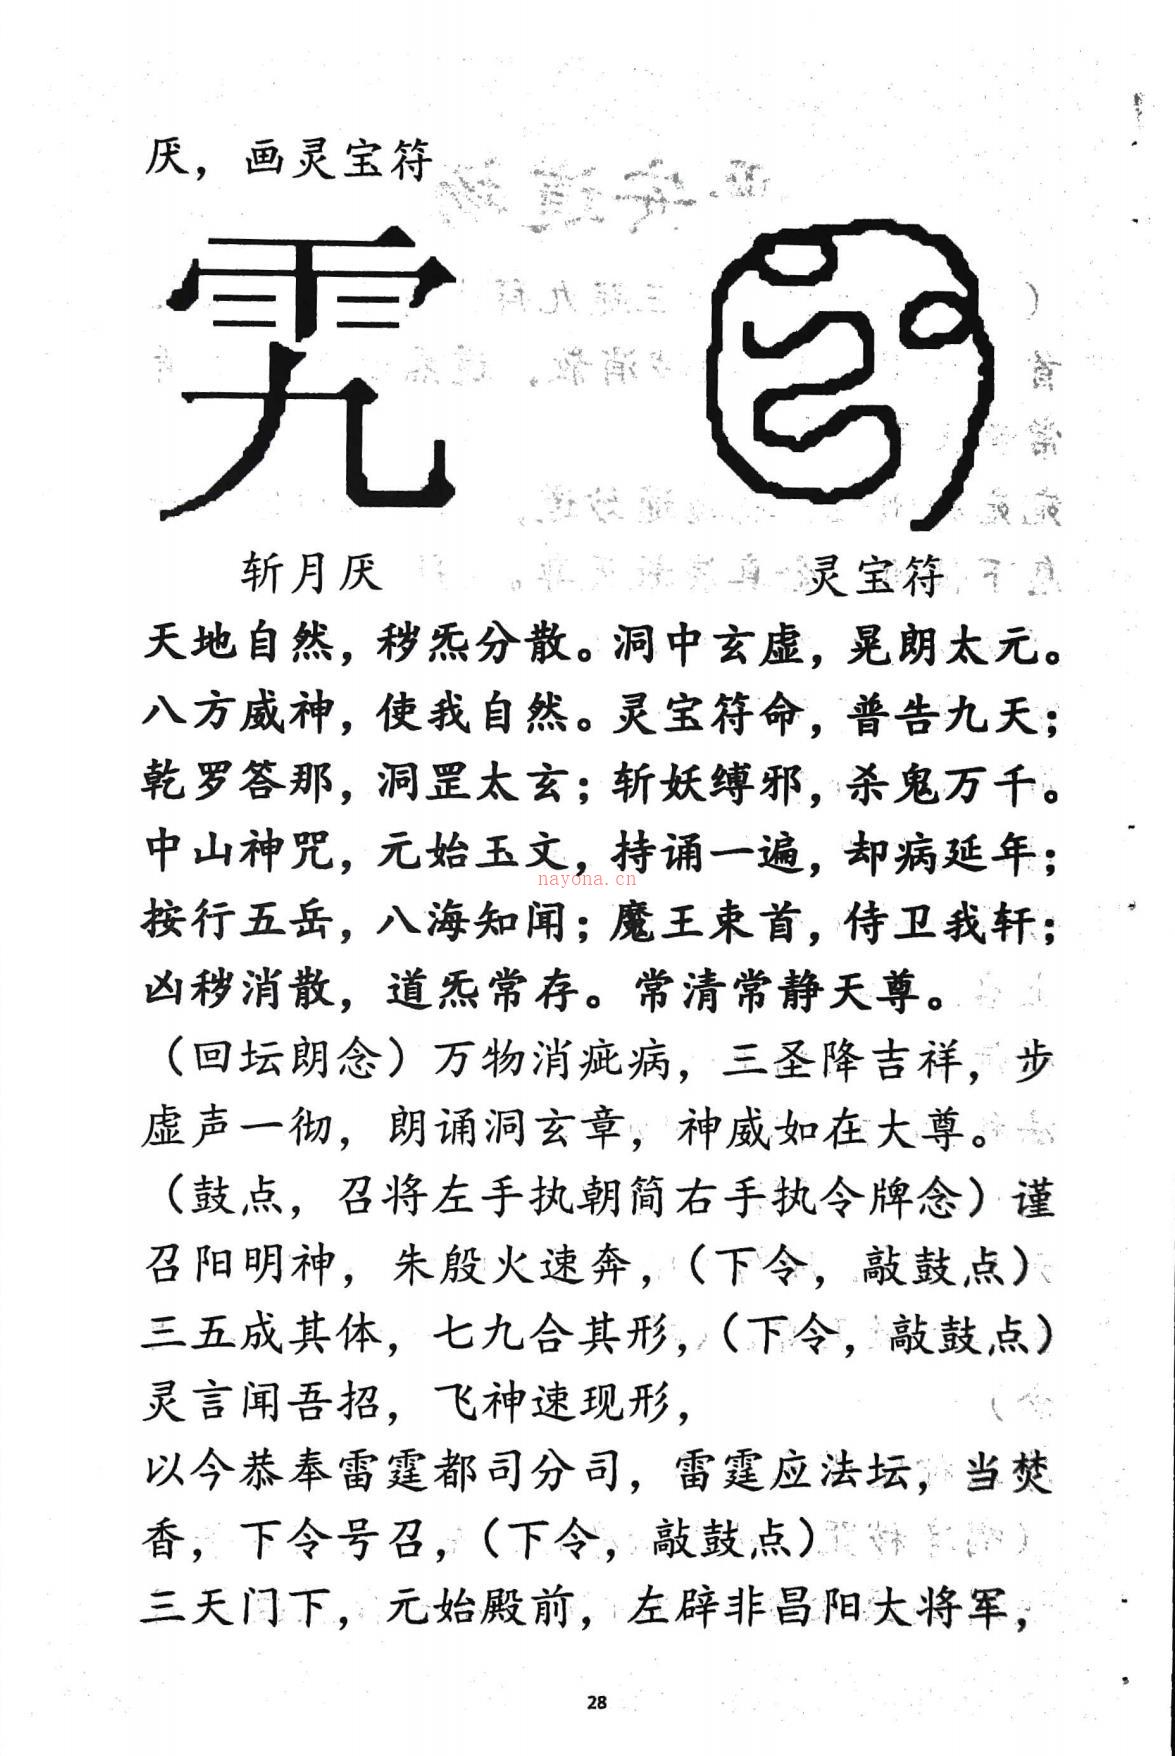 厌，画灵宝符
斩月厌
灵宝符
天地自然，秽炁分散。洞中玄虚，晃朗太元。
八方威神，使我自然。灵宝符命，普告九天；
乾罗答那，洞罡太玄；斩妖缚邪，杀鬼万千。
中山神咒，元始玉文，持诵一遍，却病延年；
按行五岳，八海知闻；魔王束首，侍卫我轩；
凶秽消散，道炁常存。常清常静天尊。
（回坛朗念）万物消疵病，三圣降吉祥，步
虚声一彻，朗诵洞玄章，神威如在大尊。
（鼓点，召将左手执朝简右手执令牌念）谨
召阳明神，朱殷火速奔，（下令，敲鼓点）
三五成其体，七九合其形，（下令，敲鼓点）
灵言闻吾招，飞神速现形，
以今恭奉雷霆都司分司，雷霆应法坛，当焚
香，下令号召，（下令，敲鼓点）
三天门下，元始殿前，左辟非昌阳大将军，
nayona.cn
28